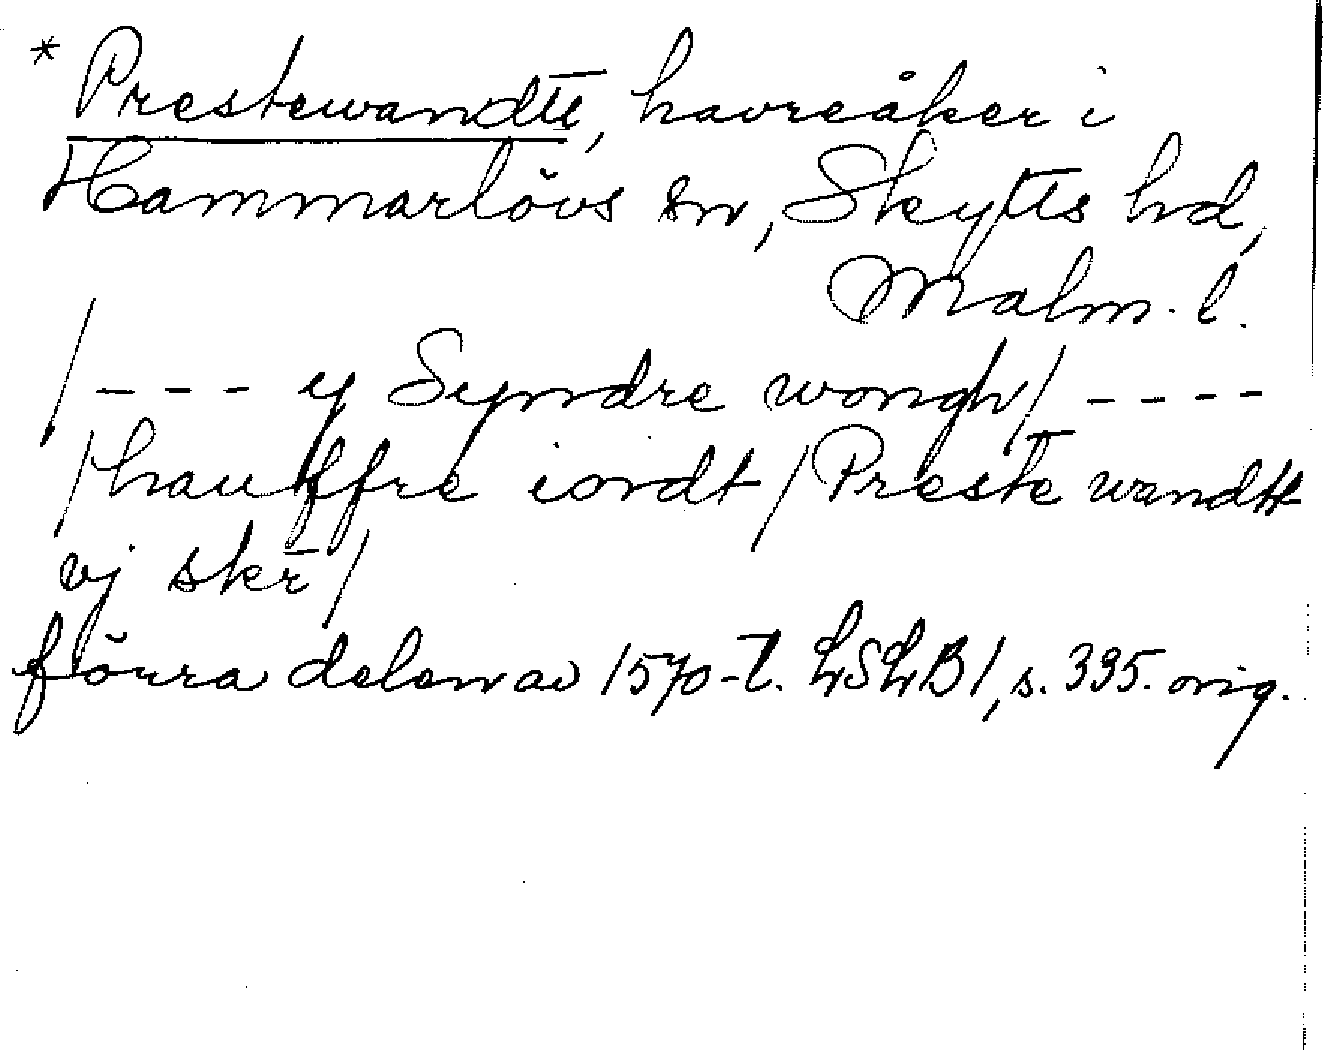 * Prestewandtt, havreåker i
Hammarlövs sn, Skytts hd,
Malm. l.
/ - - - y Syndre wongh / - - - -
/ hauffre iordt / Preste wandtt
vj skr /
förra delen av 1570-t. LSLB1, s. 335. orig.